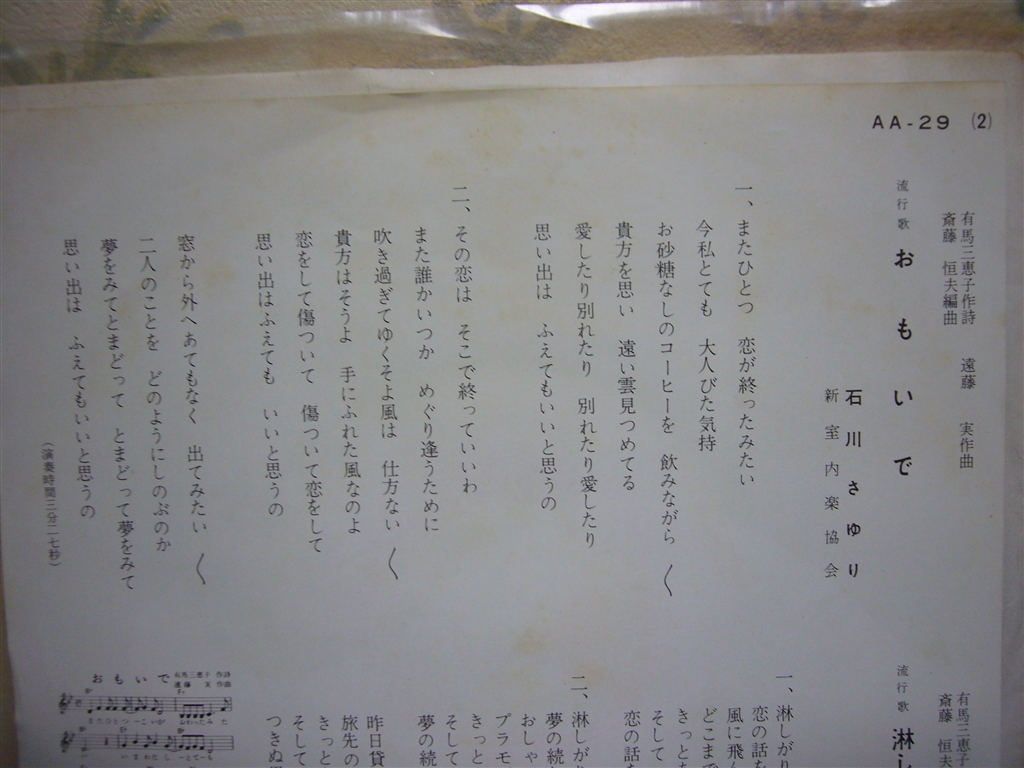 AA-29 (2)
有馬三恵子作詩 遠藤 実作曲
斎藤 恒夫編曲
流行歌 おもいで
石川さゆり
新室内楽協会
一、またひとつ 恋が終ったみたい
今私とても 大人びた気持
お砂糖なしのコーヒーを 飲みながら 〱
貴方を思い 遠い雲見つめてる
愛したり別れたり 別れたり愛したり
思い出は ふえてもいいと思うの
二、その恋は そこで終っていいわ
また誰かいつか めぐり逢うために
吹き過ぎてゆくそよ風は 仕方ない 〱
貴方はそうよ 手にふれた風なのよ
恋をして傷ついて 傷ついて恋をして
思い出はふえても いいと思うの
窓から外へあてもなく 出てみたい 〱
二人のことを どのようにしのぶのか
夢をみてとまどって とまどって夢をみて
思い出は ふえてもいいと思うの
(演奏時間三分二七秒)
有馬三恵子
斎藤 恒
流行歌 淋し
一、淋しがり
恋の話を
風に飛ん
どこまで
きっとあ
そして
恋の話
二、淋しが
夢の続
おしゃ
プラモ
きっと
そして
夢の続
昨日貸
旅先の
きっと
そして
つきぬ
おもいで 有馬三恵子 作詩
遠藤 実 作曲
またひとつ こいが おわったみた
いまわたし とても